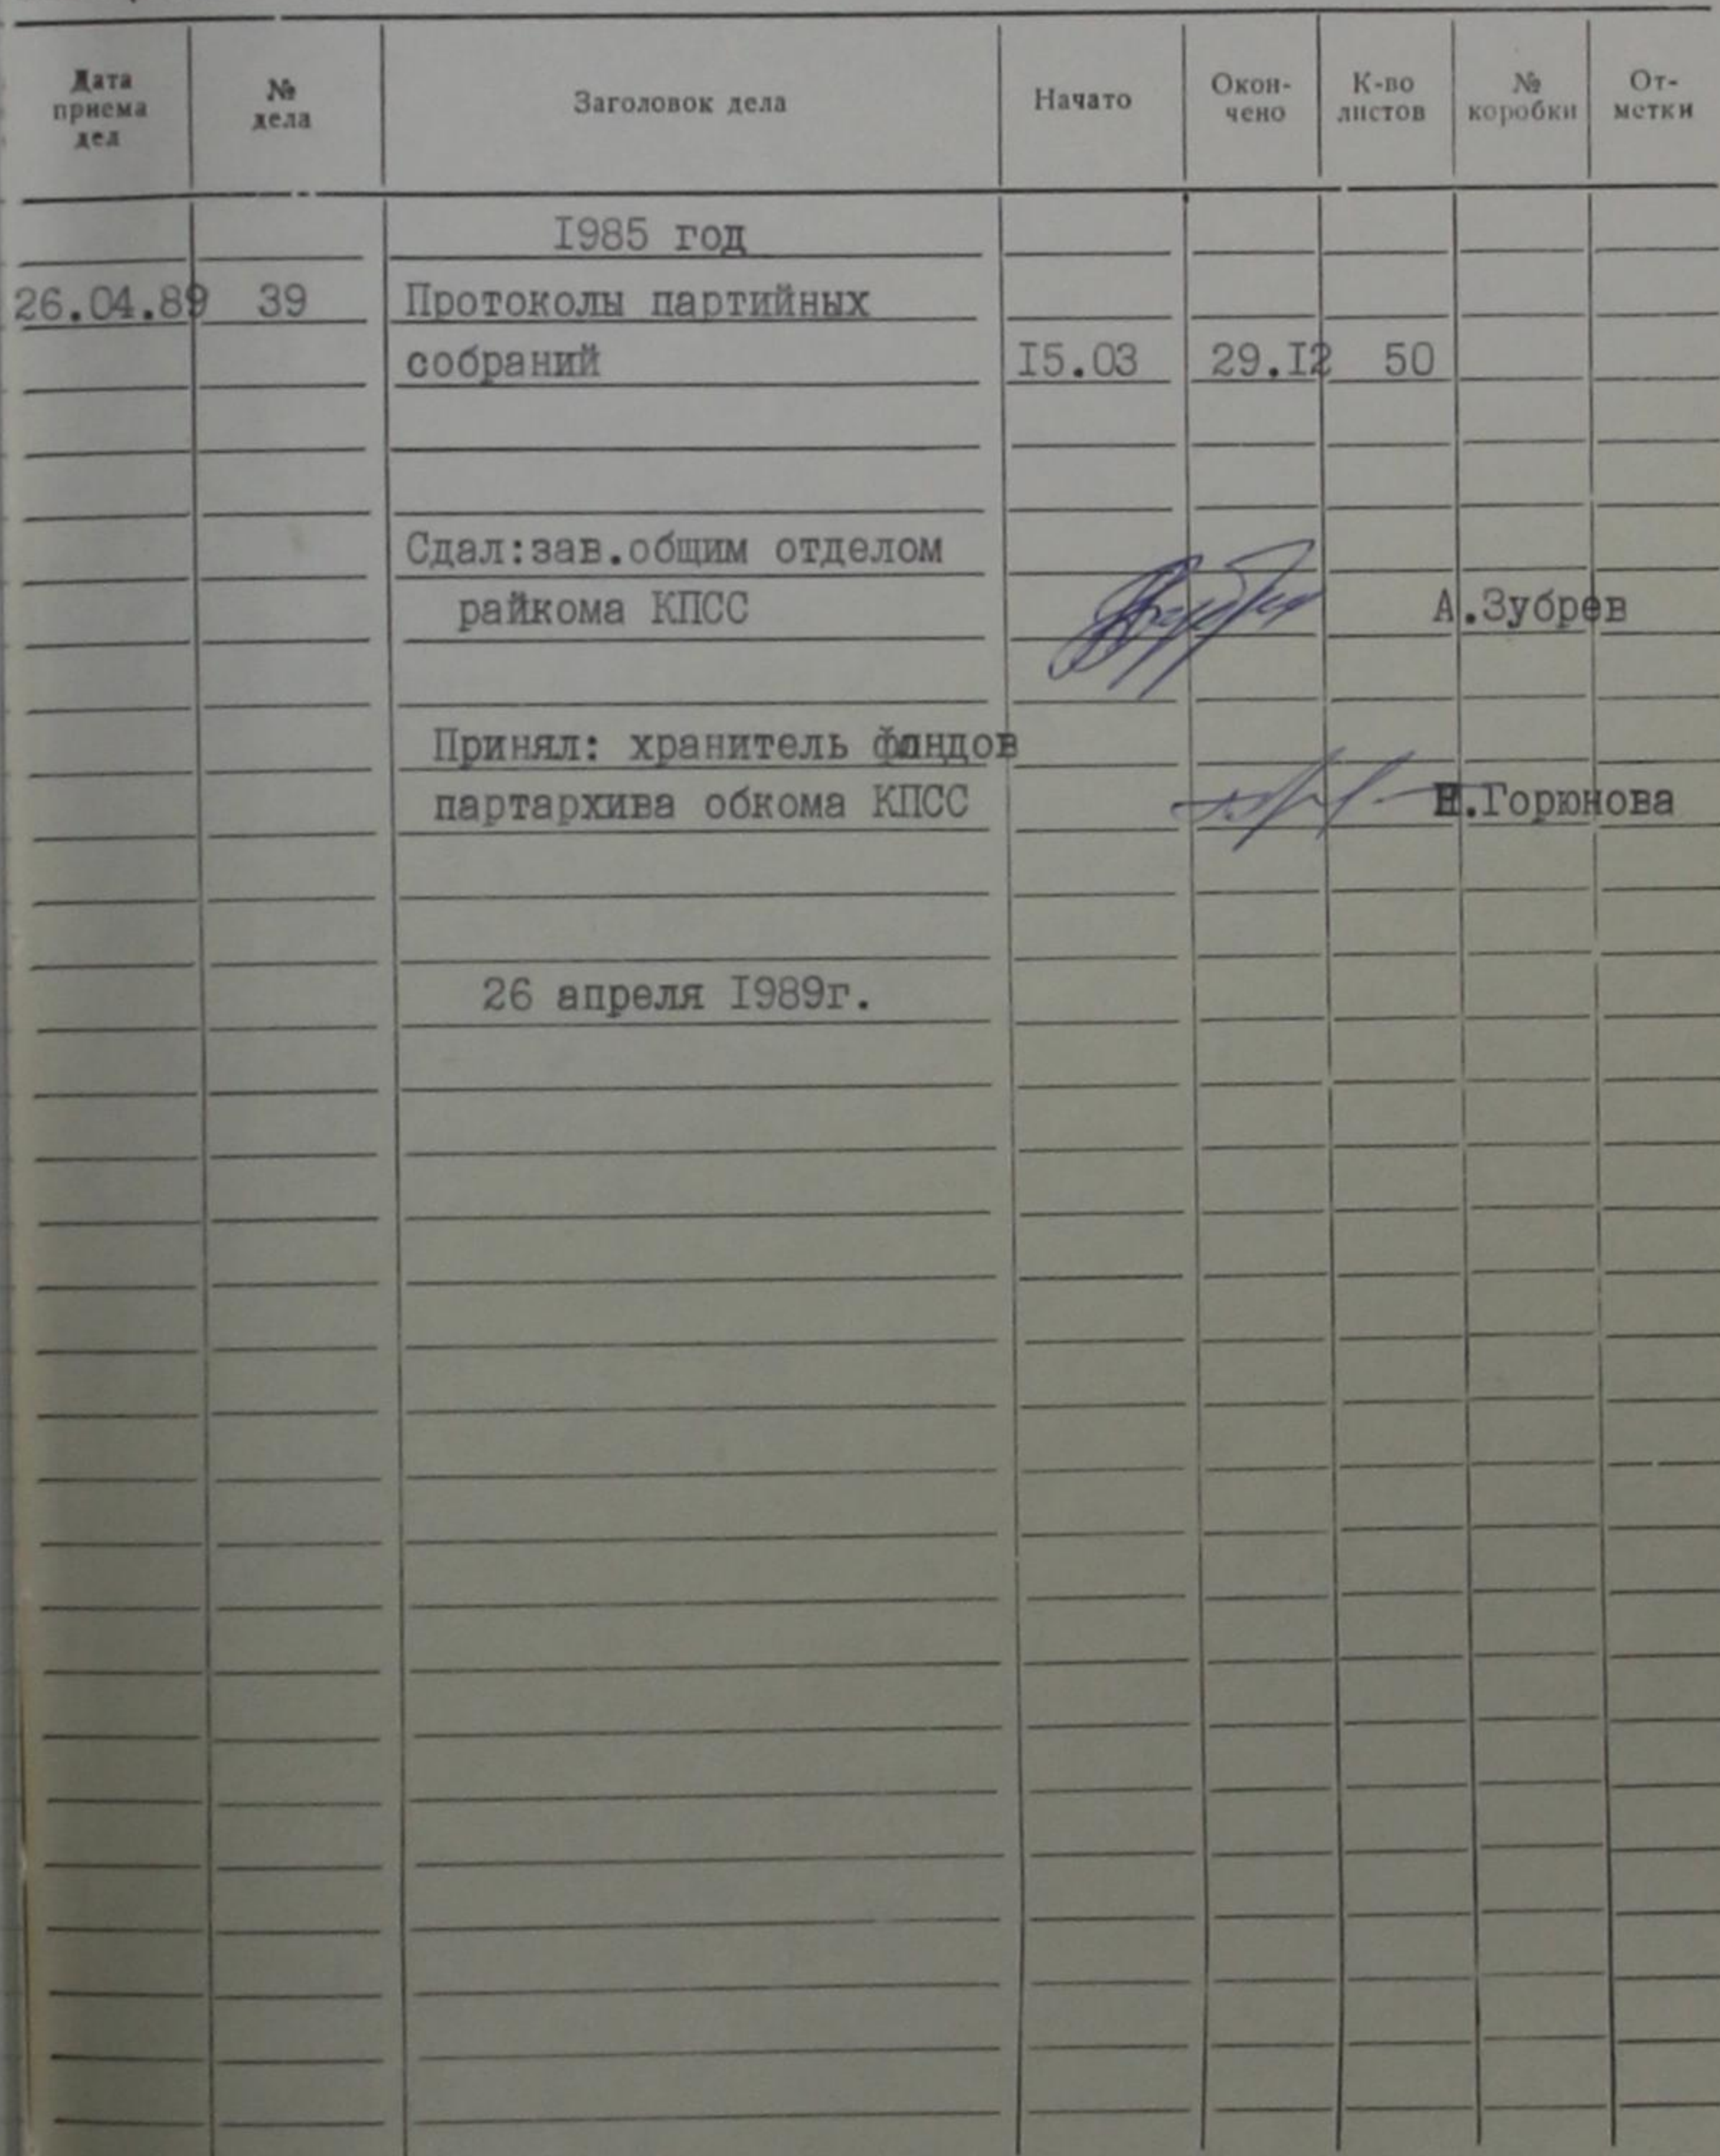 Дата приема дел № дела Заголовок дела Начато Окон-чено К-во листов № коробки От-метки
1985 год
26.04.89 39 Протоколы партийных
собраний 15.03 29.12 50
Сдал:зав.общим отделом
райкома КПСС А.Зубрев
Принял: хранитель фондов
партархива обкома КПСС Н.Горюнова
26 апреля 1989г.